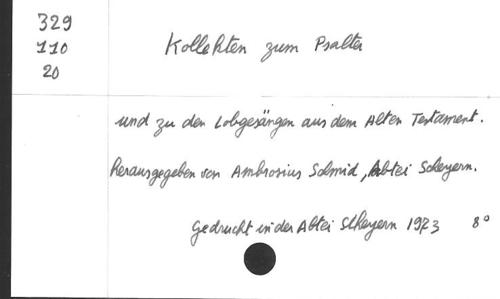 329
110
20
Kollekten zum Psalter
und zu den Lobgesängen aus dem Alten Testament.
herausgegeben von Ambrosius Schmid, Abtei Scheyern.
Gedruckt in der Abtei Scheyern 1973 8°